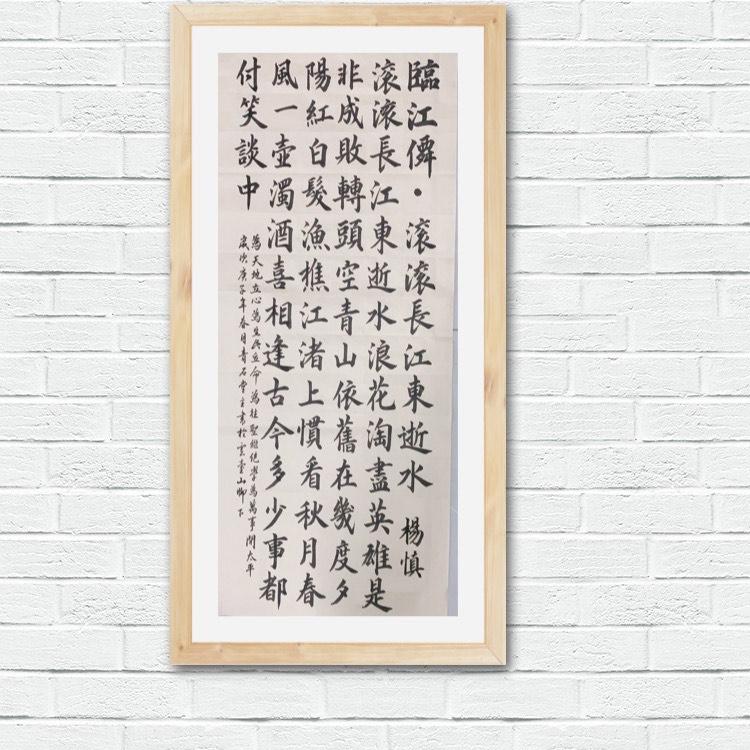 臨江僊·滾滾長江東逝水 楊慎
滾滾長江東逝水浪花淘盡英雄是
非成敗轉頭空青山依舊在幾度夕
陽紅白髮漁樵江渚上慣看秋月春
風一壺濁酒喜相逢古今多少事都
付笑談中
為天地立心為生民立命為往聖繼絕學為萬事開太平
歲次庚子年春月青石堂主書於雲臺山腳下